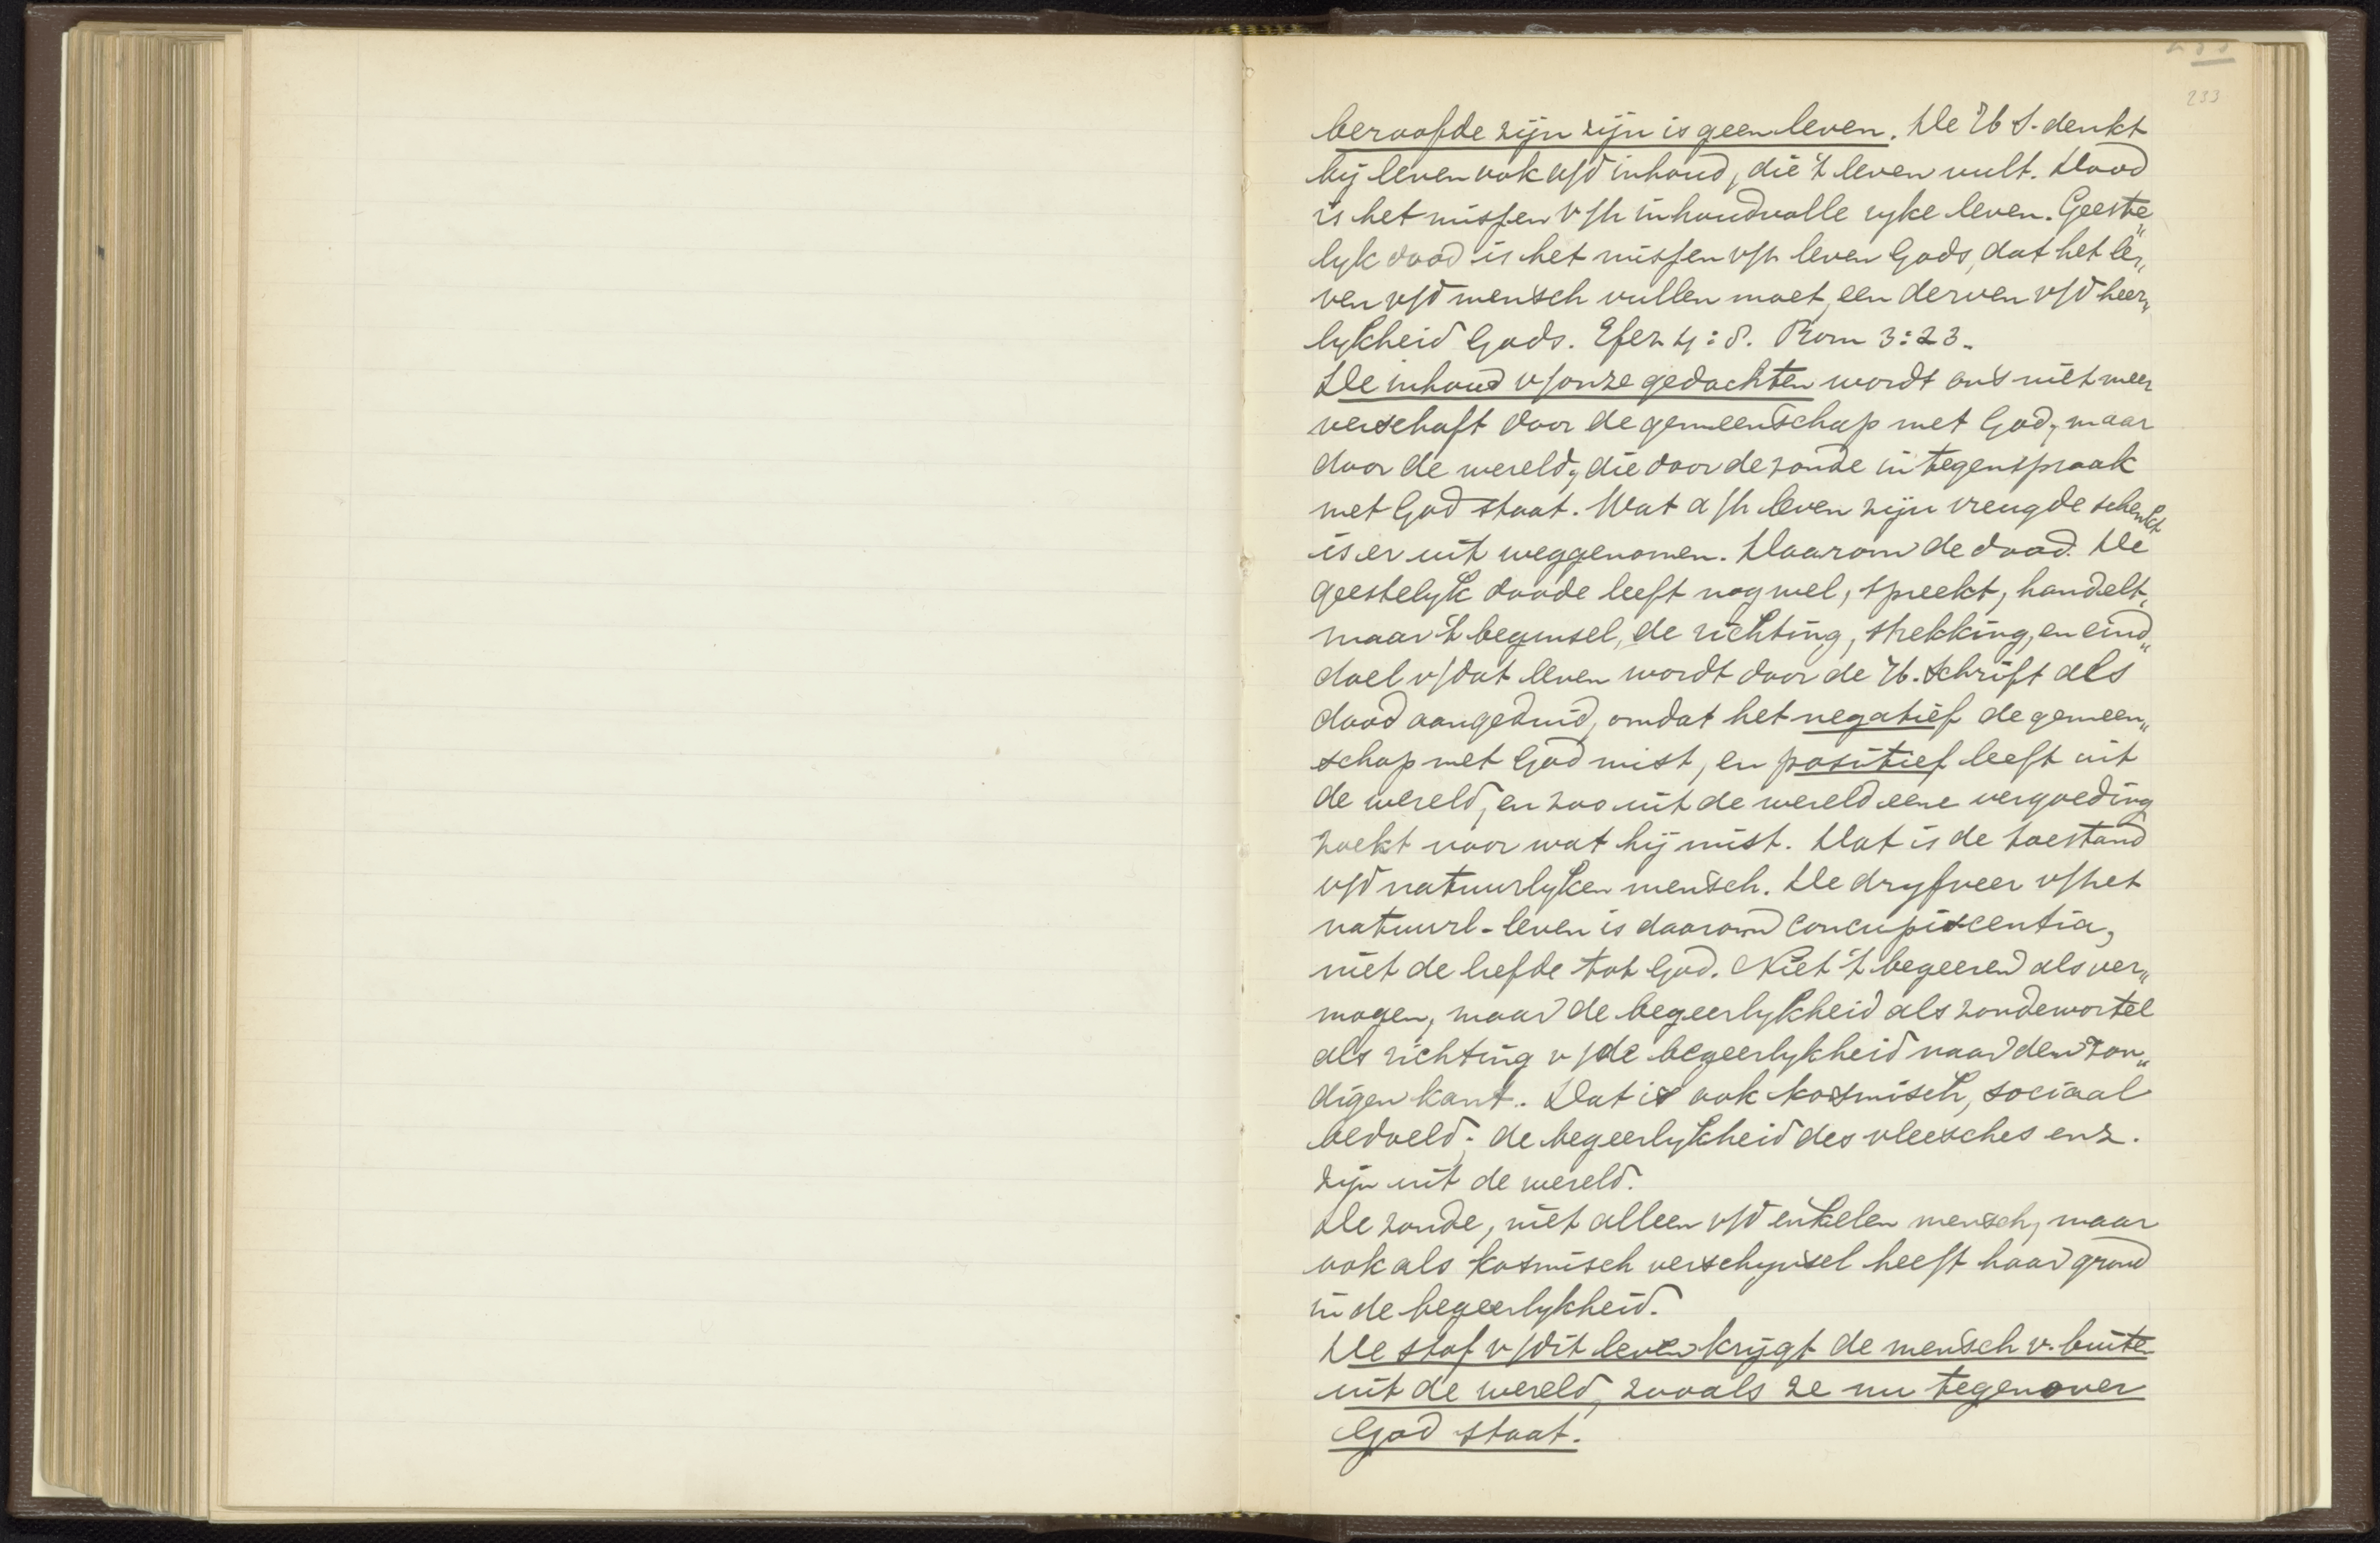 233
beroofde zijn zijn is geen leven. De H S. denkt
bij leven ook a/d inhoud, die 't leven vult. Dood
is het missen v/h inhoudvolle ryke leven. Geeste„
lyk dood is het missen v/h leven Gods, dat het le„
ven v/d mensch vullen moet, een derven v/d heer„
lykheid Gods. Efez 4:8. Rom 3:23.
De inhoud v/onze gedachten wordt ons niet meer
verschaft door de gemeenschap met God, maar
door de wereld, die door de zonde in tegenspraak
met God staat. Wat a/h leven zijn vreugde schenkt
is er uit weggenomen. Daarom de dood. De
geestelyk doode leeft nog wel, spreekt, handelt,
maar 't beginsel, de richting, strekking, en eind„
doel v/dat leven wordt door de H. Schrift als
dood aangeduid, omdat het negatief de gemeen„
schap met God mist, en positief leeft uit
de wereld, en zoo uit de wereld eene vergoeding
zoekt voor wat hij mist. Dat is de toestand
v/d natuurlyken mensch. De dryfveer v/het
natuurl- leven is daarom concupiscentia,
niet de liefde tot God. Niet 't begeeren als ver„
mogen, maar de begeerlykheid als zondewortel
als richting v/de begeerlykheid naar den zon„
digen kant. Dat is ook kosmisch, sociaal
bedoeld; de begeerlykheid des vleesches enz.
zijn uit de wereld.
De zonde, niet alleen v/d enkelen mensch, maar
ook als kosmisch verschynsel heeft haar grond
in de begeerlykheid.
De stof v/dit leven krijgt de mensch v. buiten
uit de wereld, zooals ze nu tegenover
God staat.